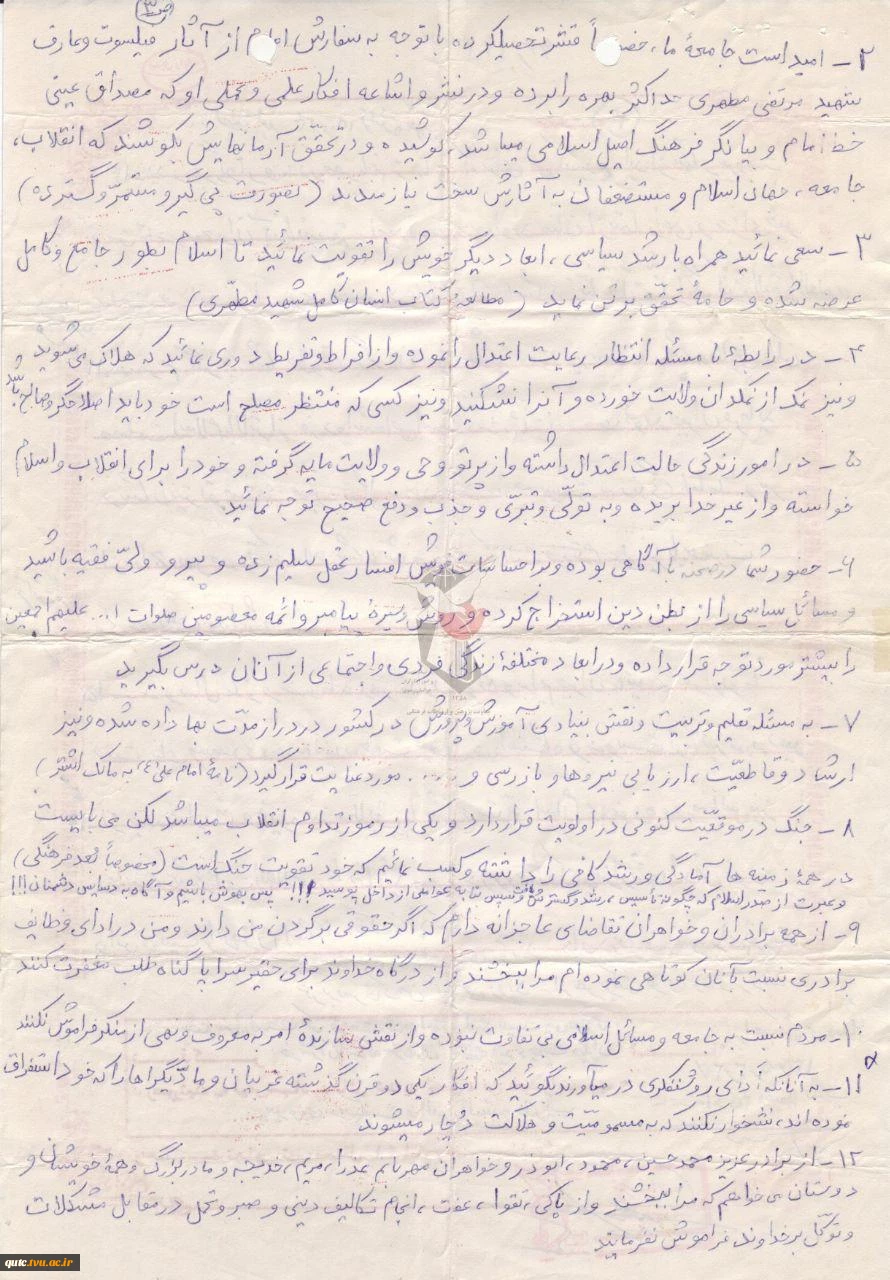 ص ۳
۲ـ امید است جامعهٔ ما، خصوصاً قشر تحصیلکرده با توجه به سفارش امام از آثار فیلسوف و عارف
شهید مرتضی مطهری حداکثر بهره را برده و در نشر و اشاعه افکار علمی و عملی او که مصداق عینی
خط امام و بیانگر فرهنگ اصیل اسلامی میباشد، کوشیده و در تحقق آرمانهایش بکوشند که انقلاب،
جامعه، جهان اسلام و مستضعفان به آثارش سخت نیازمندند (بصورت پی گیر و مستمرّ و گسترده)
۳ـ سعی نمائید همراه با رشد سیاسی، ابعاد دیگر خویش را تقویت نمائید تا اسلام بطور جامع و کامل
عرضه شده و جامهٔ تحقّق بر تن نماید (مطالعهٔ کتاب انسان کامل شهید مطهّری)
۴ـ در رابطهٔ با مسئله انتظار رعایت اعتدال را نموده و از افراط و تفریط دوری نمائید که هلاک می شوید و
و نیز نمک از نمکدان ولایت خورده و آنرا نشکنید و نیز کسی که منتظر مصلح است خود باید اصلاحگر و صالح باشد
۵ـ در امور زندگی حالت اعتدال داشته و از پرتو وحی و ولایت مایه گرفته و خود را برای انقلاب و اسلام
خواسته و از غیر خدا بریده و به تولّی و تبرّی و جذب و دفع صحیح توجه نمائید.
۶ـ حضور شما در صحنه با آگاهی بوده و بر احساسات خویش افسار عقل سلیم زده و پیرو ولیّ فقیه باشید
و مسائل سیاسی را از بطن دین استخراج کرده و روش و سیرهٔ پیامبر و ائمه معصومین صلوات ا... علیهم اجمعین
را بیشتر مورد توجه قرار داده و در ابعاد مختلفهٔ زندگی فردی و اجتماعی از آنان درس بگیرید
۷ـ به مسئله تعلیم و تربیت و نقش بنیادی آموزش و پرورش در کشور در دراز مدّت بها داده شده و نیز
ارشاد و قاطعیّت، ارزیابی نیروها و بازرسی و .... مورد عنایت قرار گیرد (نامهٔ امام علی (ع) به مالک اشتر)
۸ـ جنگ در موقعّیت کنونی در اولویت قرار دارد و یکی از رموز تداوم انقلاب میباشد لکن می بایست
در همهٔ زمینه ها آمادگی و رشد کافی را داشته و کسب نمائیم که خود تقویت جنگ است (مخصوصاً بُعد فرهنگی)
و عبرت از صدر اسلام که چگونه تأسیس، رشد و گسترش یافت و سپس بنا به عواملی از داخل پوسید !!! پس بهوش باشیم و آگاه به دسایس دشمنان !!!
۹ـ از همه برادران و خواهران تقاضای عاجزانه دارم که اگر حقوقی برگردن من دارند و من در ادای وظایف
برادری نسبت بآنان کوتاهی نموده ام مرا ببخشند و از درگاه خداوند برای حقیر سراپا گناه طلب مغفرت کنند
۱۰ـ مردم نسبت به جامعه و مسائل اسلامی بی تفاوت نبوده و از نقش سازندهٔ امر به معروف و نهی از منکر فراموش نکنند
۱۱ـ به آنانکه اَدای روشنفکری در میآورند بگوئید که افکار یکی دو قرن گذشته غربیان و مادّیگراها را که خود استفراق
نموده اند، نشخوار نکنند که به مسمومیّت و هلاکت دُچار میشوند
۱۲ـ از برادر عزیز محمد حسین، محمود، ابوذر و خواهران مهربانم عذرا، مریم، خدیجه و مادر بزرگ و همهٔ خویشان و
دوستان می خواهم که مرا ببخشند و از پاکی، تقوا، عفت، انجام تکالیف دینی و صبر و تحمل در مقابل مشکلات
و توکّل بر خداوند فراموش نفرمایند
qutc.tvu.ac.ir